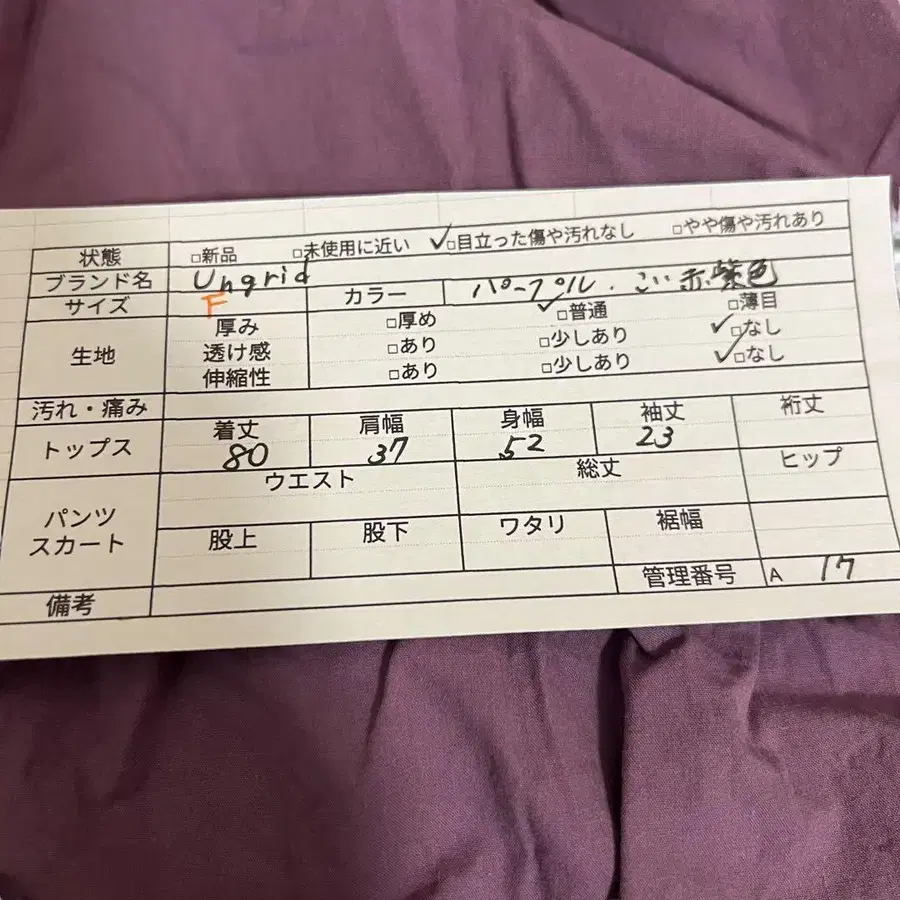 状態 □新品 □未使用に近い ✓□目立った傷や汚れなし □やや傷や汚れあり
ブランド名 Ungrid
サイズ F カラー パープル・こい赤紫色
生地 厚み □厚め ✓□普通 □薄目
透け感 □あり □少しあり ✓□なし
伸縮性 □あり □少しあり ✓□なし
汚れ・痛み
トップス 着丈 肩幅 身幅 袖丈 裄丈
80 37 52 23
パンツ スカート ウエスト 総丈 ヒップ
股上 股下 ワタリ 裾幅
管理番号 A 17
備考